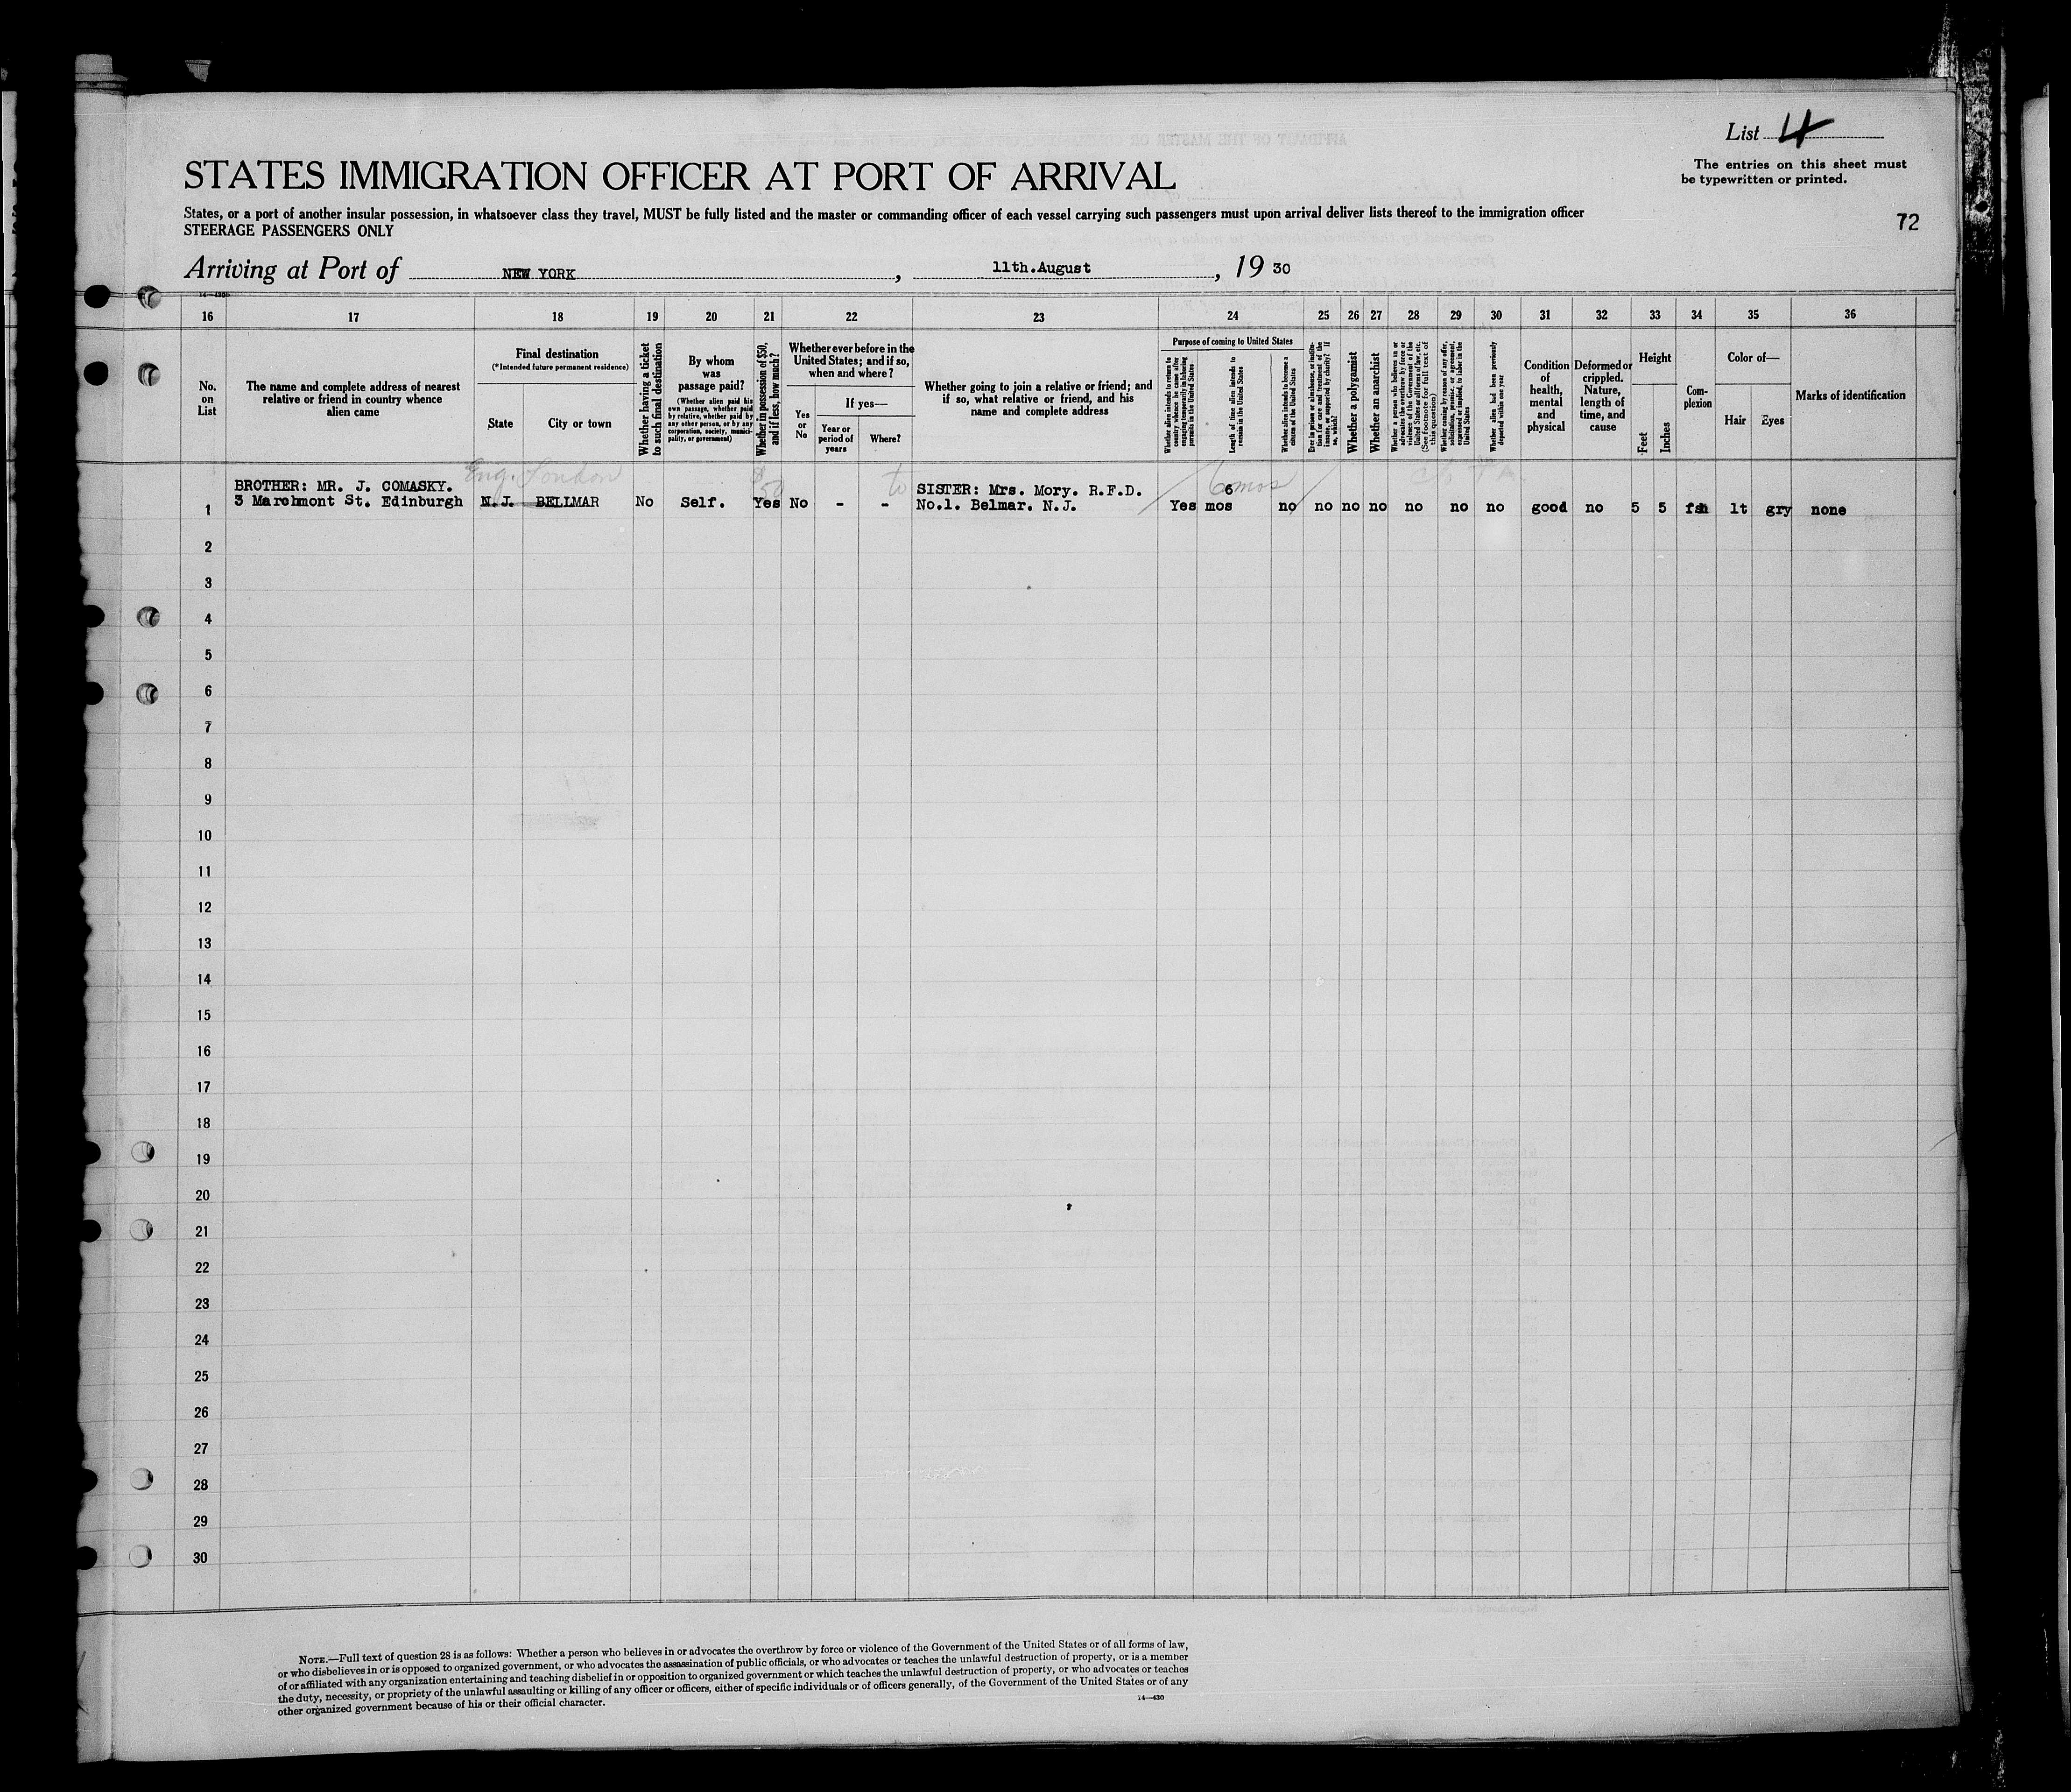 List 4
The entries on this sheet must
be typewritten or printed.
STATES IMMIGRATION OFFICER AT PORT OF ARRIVAL
States, or a port of another insular possession, in whatsoever class they travel, MUST be fully listed and the master or commanding officer of each vessel carrying such passengers must upon arrival deliver lists thereof to the immigration officer
STEERAGE PASSENGERS ONLY
72
Arriving at Port of NEW YORK, 11th.August, 19 30
16 17 18 19 20 21 22 23 24 25 26 27 28 29 30 31 32 33 34 35 36
No.
on
List
The name and complete address of nearest
relative or friend in country whence
alien came
Final destination
(*Intended future permanent residence)
State
City or town
Whether having a ticket
to such final destination
By whom
was
passage paid?
(Whether alien paid his
own passage, whether paid
by relative, whether paid by
any other person, or by any
corporation, society, munici-
pality, or government)
Whether in possession of $50,
and if less, how much?
Whether ever before in the
United States; and if so,
when and where?
Yes
or
No
If yes—
Year or
period of
years
Where?
Whether going to join a relative or friend; and
if so, what relative or friend, and his
name and complete address
Purpose of coming to United States
Whether alien intends to return to
country whence he came after
engaging temporarily in laboring
pursuits in the United States
Length of time alien intends to
remain in the United States
Whether alien intends to become a
citizen of the United States
Ever in prison or almshouse, or institu-
tion for care and treatment of the
insane, or supported by charity? If
so, which?
Whether a polygamist
Whether an anarchist
Whether a person who believes in or
advocates the overthrow by force or
violence of the Government of the
United States or all forms of law, etc.
(See footnote for full text of
this question)
Whether coming by reason of any offer,
solicitation, promise, or agreement,
expressed or implied, to labor in the
United States
Whether alien had been previously
deported within one year
Condition
of
health,
mental
and
physical
Deformed or
crippled.
Nature,
length of
time, and
cause
Height
Feet
Inches
Com-
plexion
Color of—
Hair
Eyes
Marks of identification
Eng. London $50 to 6 mos
BROTHER: MR. J. COMASKY. SISTER: Mrs. Mory. R.F.D. 6
1 3 Marchmont St. Edinburgh N.J. BELLMAR No Self. Yes No - - No.1. Belmar. N.J. Yes mos no no no no no no no good no 5 5 fsh lt gry none
2
3
4
5
6
7
8
9
10
11
12
13
14
15
16
17
18
19
20
21
22
23
24
25
26
27
28
29
30
NOTE.—Full text of question 28 is as follows: Whether a person who believes in or advocates the overthrow by force or violence of the Government of the United States or of all forms of law,
or who disbelieves in or is opposed to organized government, or who advocates the assassination of public officials, or who advocates or teaches the unlawful destruction of property, or is a member
of or affiliated with any organization entertaining and teaching disbelief in or opposition to organized government or which teaches the unlawful destruction of property, or who advocates or teaches
the duty, necessity, or propriety of the unlawful assaulting or killing of any officer or officers, either of specific individuals or of officers generally, of the Government of the United States or of any
other organized government because of his or their official character.
14—430